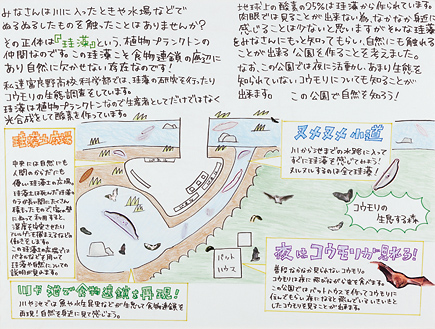 みなさんは川に入ったときや水場などで
ぬるぬるしたものを触ったことはありませんか?
その正体は『珪藻』という、植物プランクトンの
仲間なのです。この珪藻こそ食物連鎖の底辺に
あり自然に欠かせない存在なのです!
私達富良野高校科学部では、珪藻の研究を行ったり
コウモリの生態調査をしています。
珪藻は植物プランクトンなので生産者としてだけではなく
光合成をして酸素を作っています。
地球上の酸素の25%は珪藻から作られています。
肉眼では見ることが出来ない為、なかなか身近に
感じることは少ないと思いますがそんな珪藻
をみなさんにもっと知ってもらい、自然にも触れる
ことが出来る公園を作ることを考えました。
なお、この公園では夜に活動し、あまり生態を
知られていないコウモリについても知ることが
出来ます。 この公園で自然を知ろう!
珪藻土広場
中央には自然にも
人間のからだにも
優しい珪藻土の広場。
ヌメヌメ小道
川から池までの水路に入って
すぐに珪藻を感じてみよう!
ヌルヌルするのは全て珪藻!
コウモリの
生息する森
バット
ハウス
夜はコウモリが見れる!
普段なかなか見れないコウモリ。
コウモリは夜に飛びながら虫を食べます。
この公園ではバットハウスを作ってコウモリに
川や池で食物連鎖を再現!
川や池では魚や水生昆虫などが珪藻を食べて食物連鎖を
再現!自然を身近に見て感じよう。